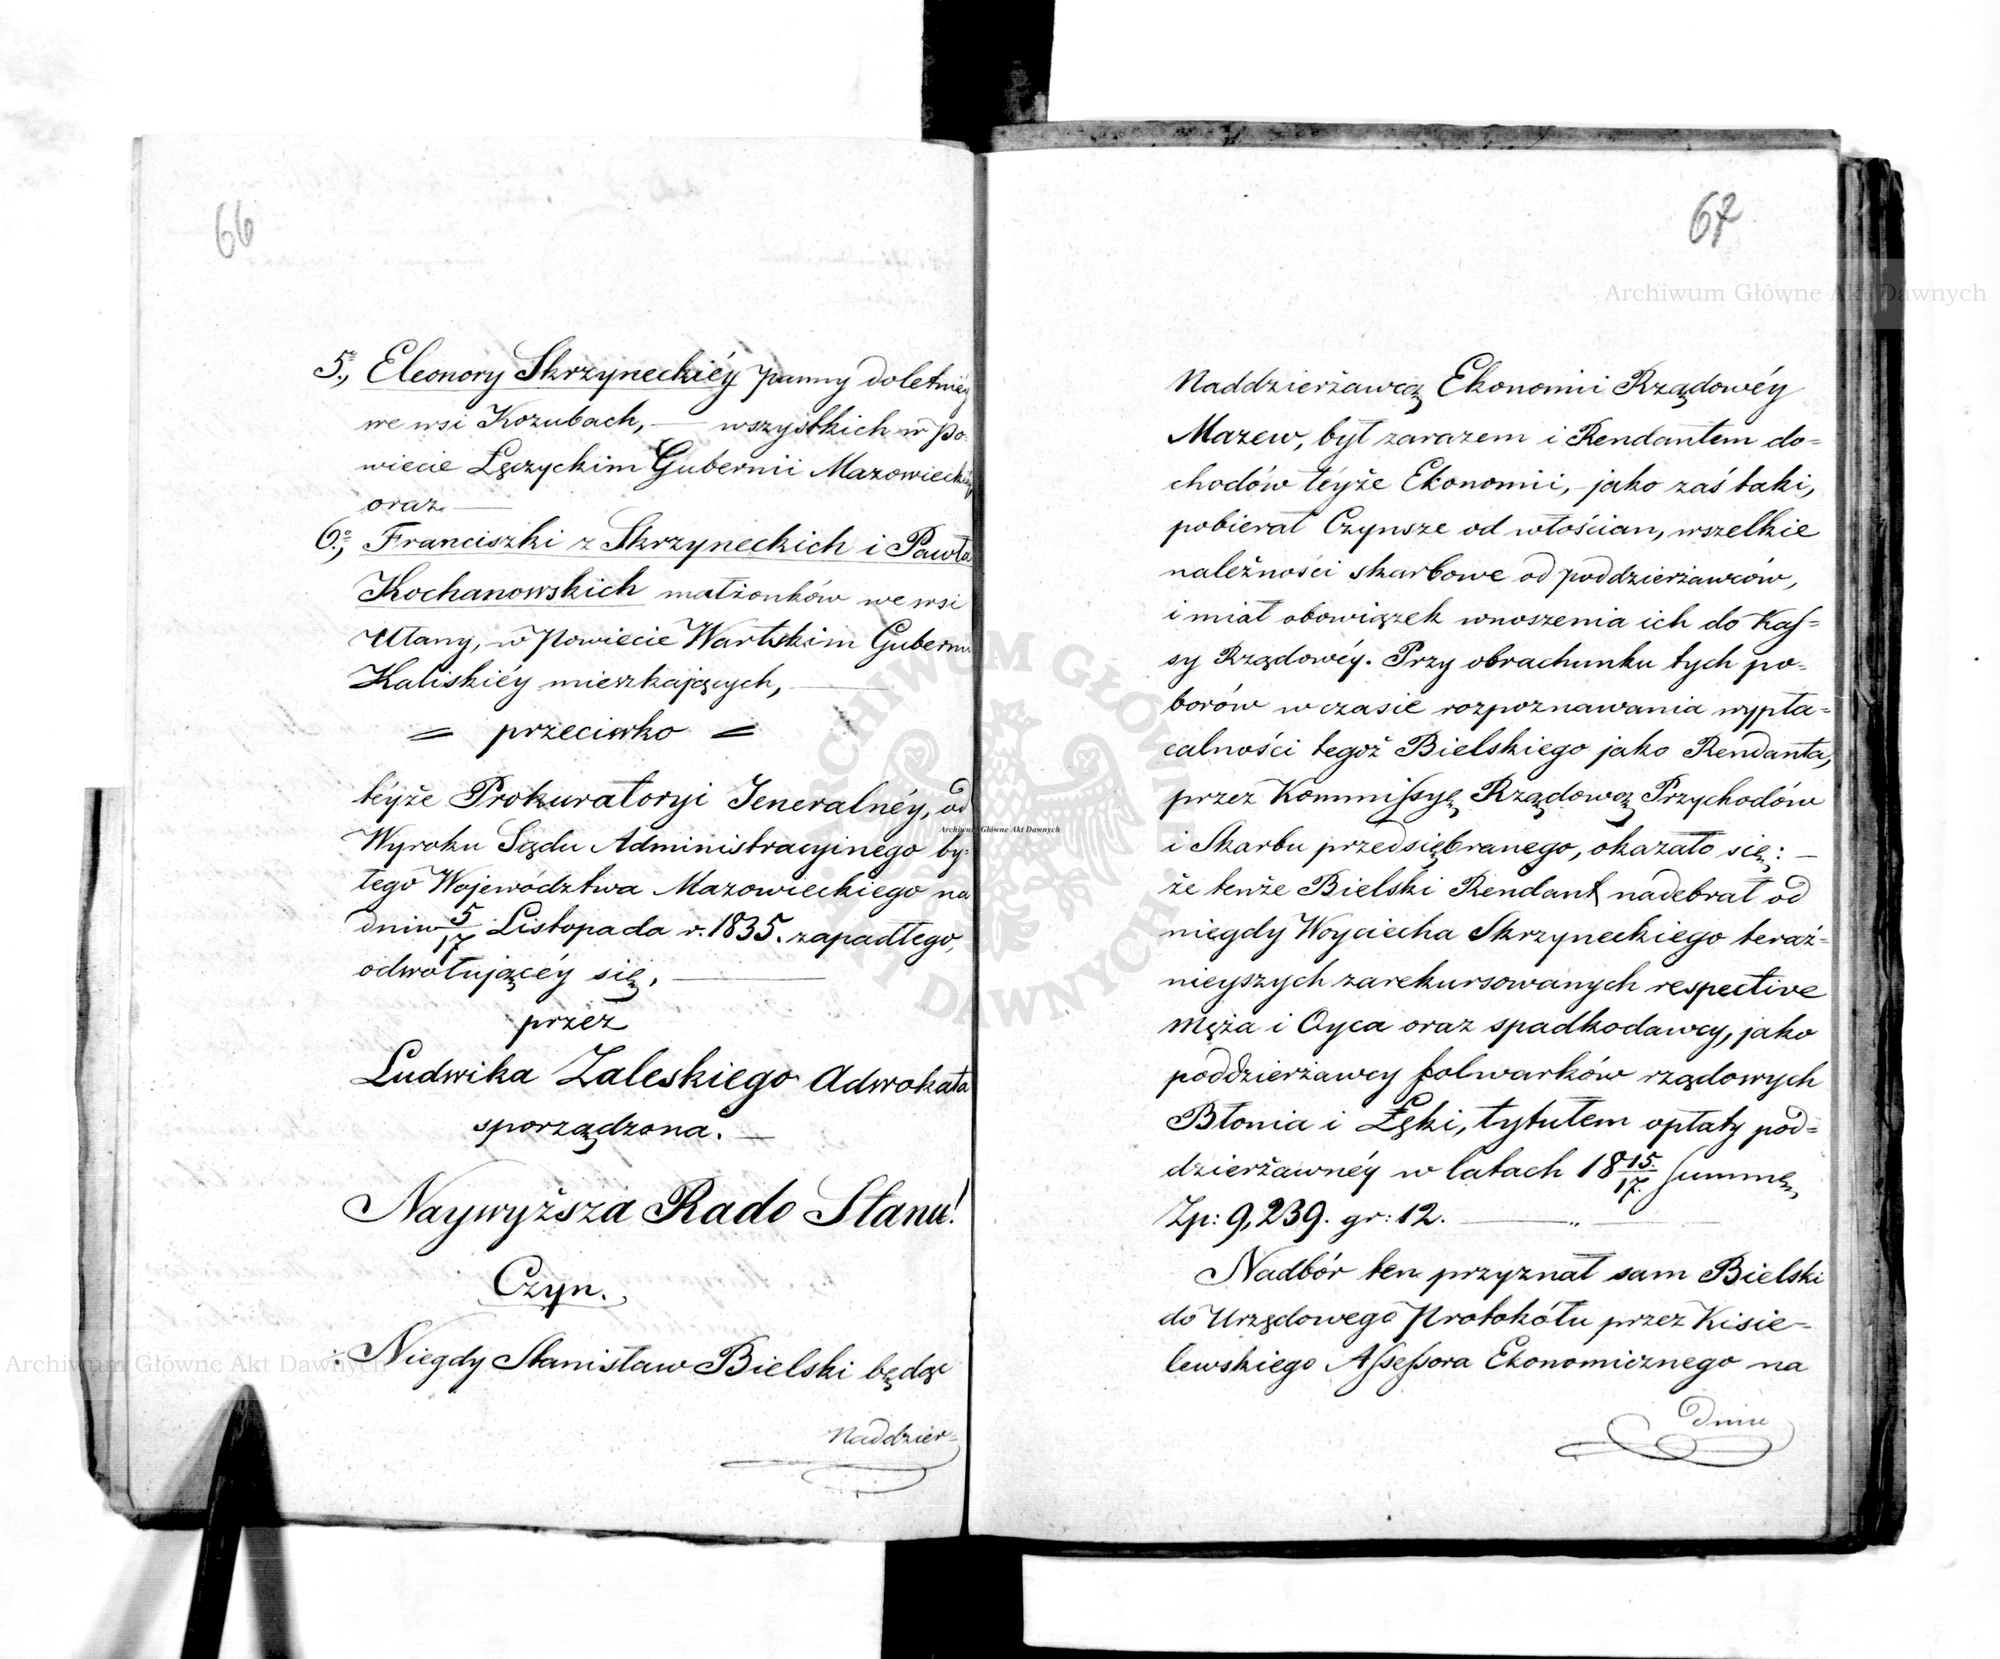 66
5º, Eleonory Skrzyneckiéy panny doletniéy
we wsi Kozubach, — wszystkich w Po-
wiecie Łęczyckim Gubernii Mazowieckiéy
oraz —
6º, Franciszki z Skrzyneckich i Pawła
Kochanowskich małżonków we wsi
Ułany, w Powiecie Wartskim Gubernii
Kaliskiéy mieszkających, —
= przeciwko =
teyże Prokuratoryi Jeneralnéy, od
Wyroku Sądu Administracyinego by-
łego Województwa Mazowieckiego na
dniu 5/17 Listopada r. 1835. zapadłego,
odwołującéy się, —
przez
Ludwika Zaleskiego Adwokata
sporządzona. —
Naywyższa Rado Stanu!
Czyn.
Niegdy Stanisław Bielski będąc
Naddzier-
67
Naddzierżawcą Ekonomii Rządowéy
Mazew, był zarazem i Rendantem do-
chodów téyże Ekonomii, jako zaś taki,
pobierał Czynsze od włościan, wszelkie
należności skarbowe od poddzierżawców,
i miał obowiązek wnoszenia ich do Kas-
sy Rządowéy. Przy obrachunku tych po-
borów w czasie rozpoznawania wypła-
calności tegoż Bielskiego jako Rendanta,
przez Kommissyę Rządową Przychodów
i Skarbu przedsiębranego, okazało się: —
że tenże Bielski Rendant nadebrał od
niegdy Woyciecha Skrzyneckiego teraź-
nieyszych zarekursowanych respective
męża i Oyca oraz spadkodawcy, jako
poddzierżawcy folwarków rządowych
Błonia i Łęki, tytułem opłaty pod-
dzierżawnéy w latach 18 15/17. summę
Zp: 9,239. gr: 12. — „ —
Nadbór ten przyznał sam Bielski
do Urzędowego Protokółu przez Kisie-
lewskiego Assessora Ekonomicznego na
dniu
Archiwum Główne Akt Dawnych
Archiwum Główne Akt Dawnych
Archiwum Główne Akt Dawnych
ARCHIWUM GŁÓWNE AKT DAWNYCH